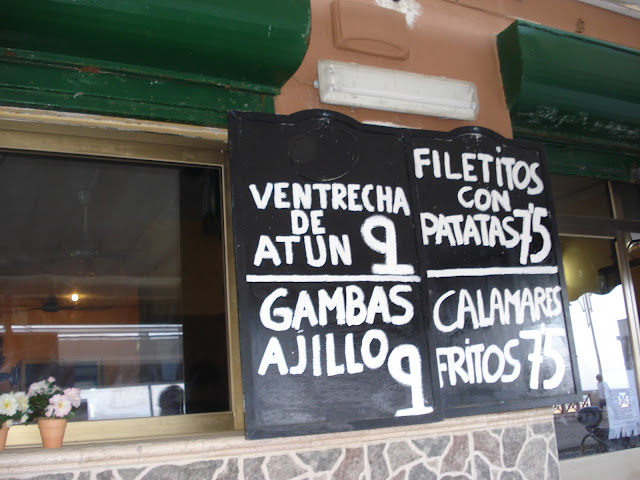 VENTRECHA
DE
ATUN 9
GAMBAS
AJILLO 9
FILETITOS
CON
PATATAS 7'5
CALAMARES
FRITOS 7'5